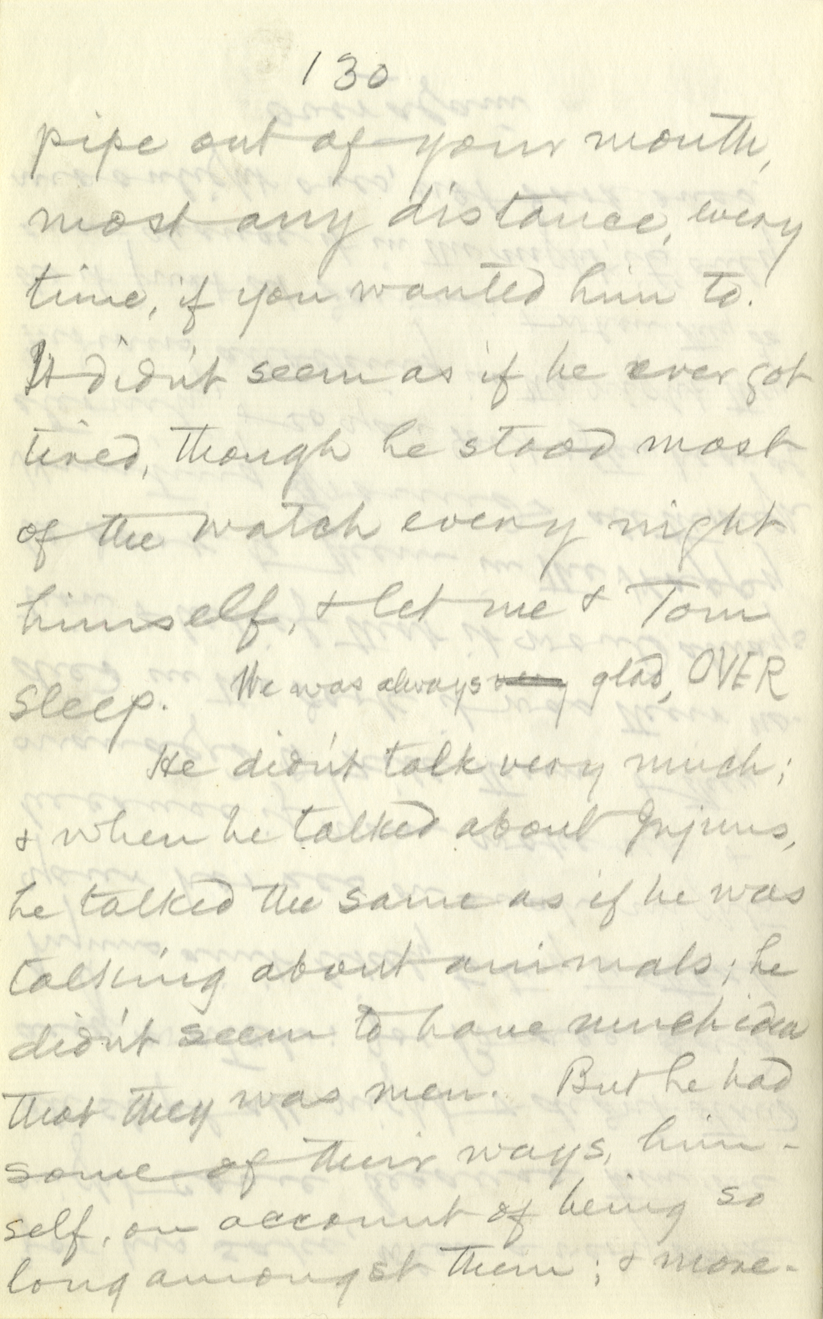 130
pipe out of your mouth,
most any distance, every
time, if you wanted him to.
It didn't seem as if he ever got
tired, though he stood most
of the watch every night
himself, & let me & Tom
sleep. We was always glad, OVER
He didn't talk very much;
& when he talked about Injuns,
he talked the same as if he was
talking about animals; he
didn't seem to have much idea
that they was men. But he had
some of their ways, him-
self, on account of being so
long amongst them; & more-